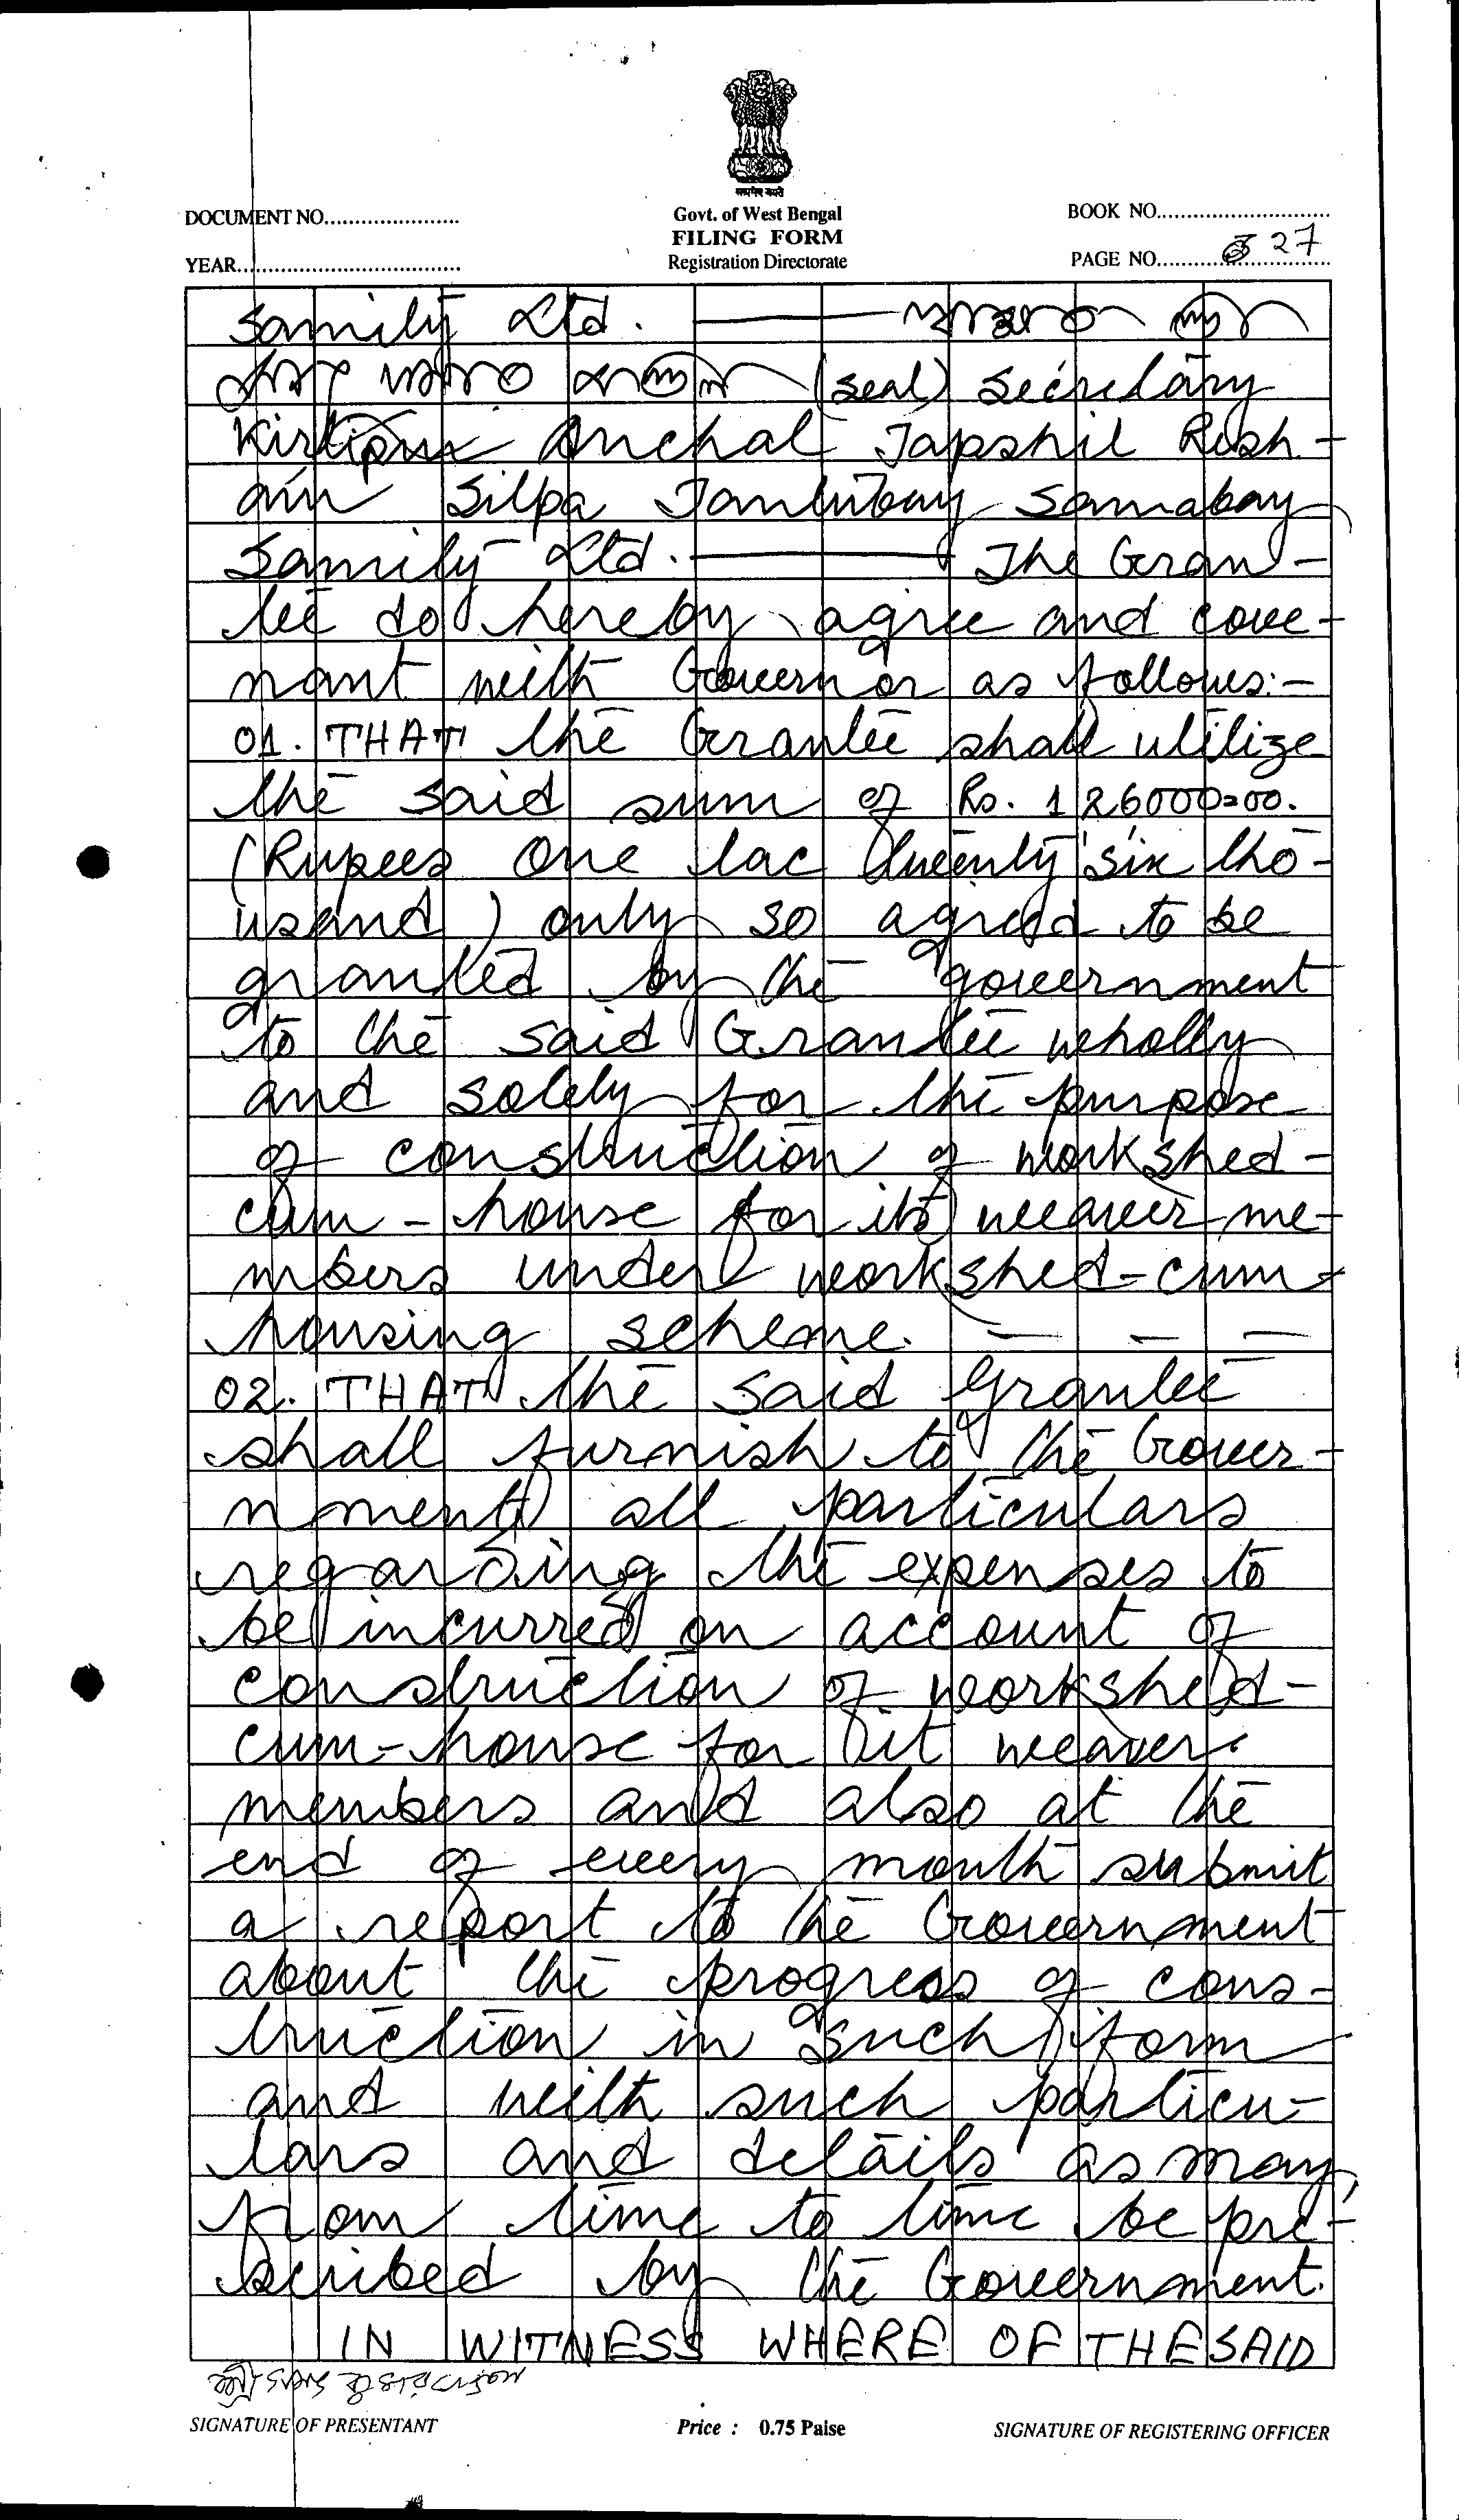 सत्यमेव जयते
Govt. of West Bengal
FILING FORM
Registration Directorate
DOCUMENT NO.
YEAR
BOOK NO.
PAGE NO. 27
Samity Ltd.
(seal) Secretary
Kirtipur Anchal Tapshil Resh-
am Silpa Tantubay Samabay
Samity Ltd. The Gran-
tee do hereby agree and cove-
nant with Governor as follows:-
01. THAT the Grantee shall utilize
the said sum of Rs. 126000=00.
(Rupees One lac twenty six tho-
usand) only so agreed to be
granted by the government
to the said Grantee wholly
and solely for the purpose
of construction of workshed-
cum-house for its weaver me-
mbers under workshed-cum-
housing scheme. - - -
02. THAT the said grantee
shall furnish to the Gover-
nment all particulars
regarding the expenses to
be incurred on account of
construction of workshed-
cum-house for it weaver.
members and also at the
end of every month submit
a report to the Government
about the progress of cons-
truction in such form
and with such particu-
lars and details as may,
from time to time be pre-
scribed by the Government.
IN WITNESS WHERE OF THE SAID
SIGNATURE OF PRESENTANT
Price : 0.75 Paise
SIGNATURE OF REGISTERING OFFICER